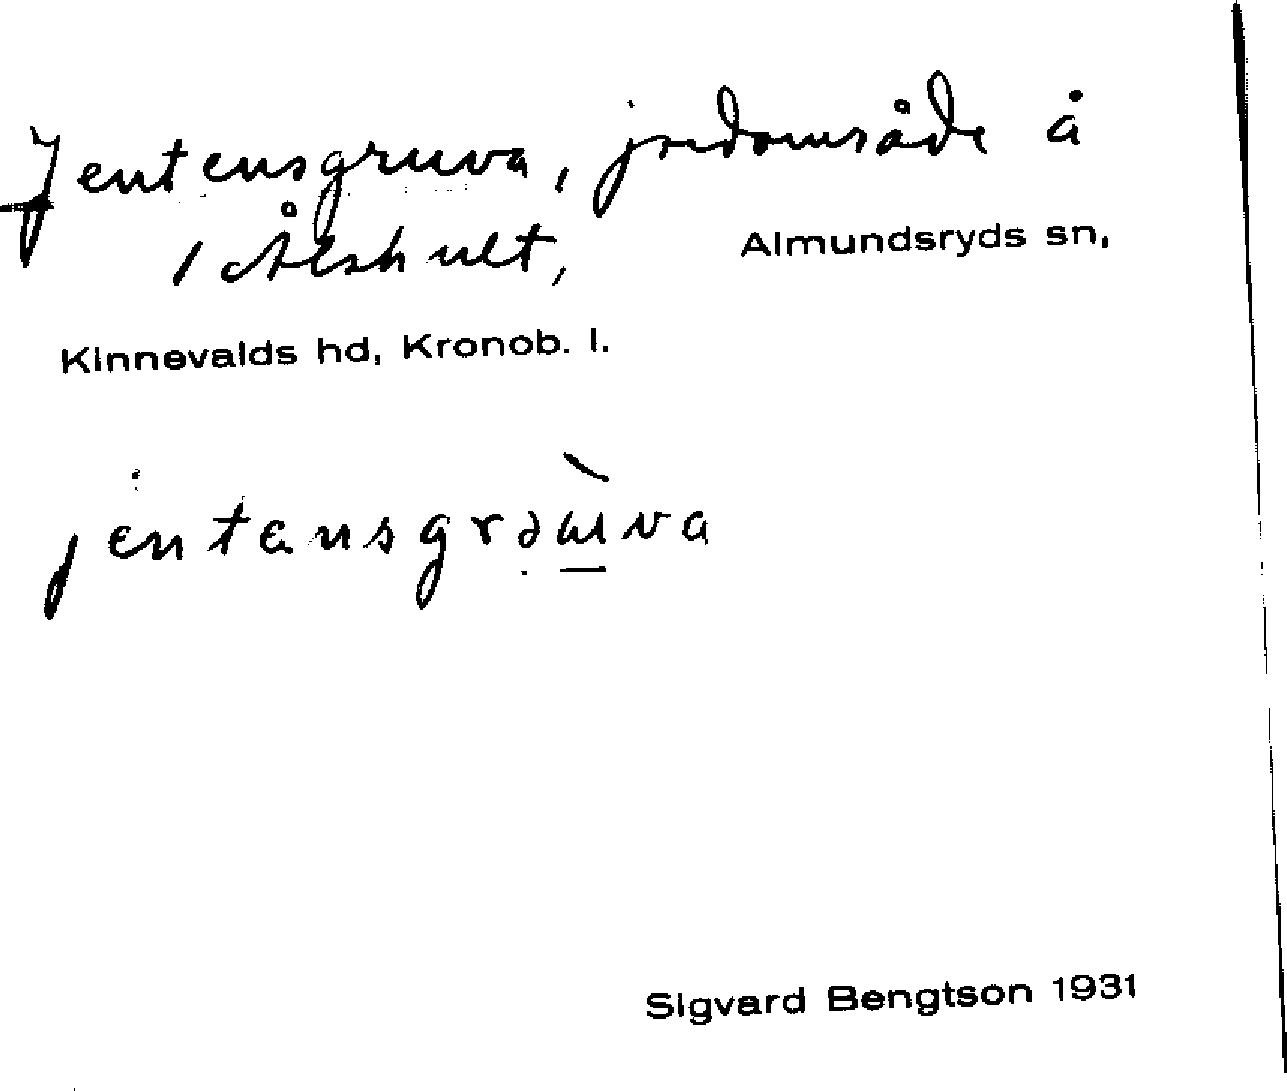 Jentensgruva, jordområde å
1 Ålshult, Almundsryds sn,
Kinnevalds hd, Kronob. l.
jentensgrəuva
Sigvard Bengtson 1931